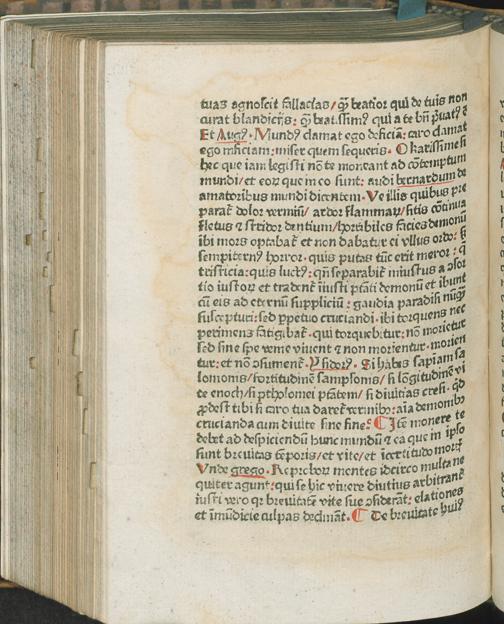 tuas agnoscit fallacias/ qͣ beatior qui de tuis non
curat blandicijs: qͣ beatissimꝰ qui a te bn̄ pͥuatꝰ ē
Et Augꝰ. Mundꝰ clamat ego deficiā: caro clamat
ego inficiam: miser quem sequeris. O karissime si
hec que iam legisti nō te moueant ad cōtemptum
mundi/ et eoꝝ que in eo sunt: audi bernardum de
amatoribus mundi dicentem. Ve illis quibus pre
paratᷓ dolor vermiū/ ardor flammaꝝ/ sitis cōtinua
fletus ⁊ stridor dentium/ horribiles facies demonū
ibi mors optabatᷓ et non dabatur et vllus ordo: ꝫ
sempiternꝰ horror. quis putas tūc erit meror: q̄
tristicia: quis luctꝰ: qn̄ separabitᷓ iniustus a ↄsor
tio iustoꝝ et tradentᷓ iniusti ptāti demonū et ibunt
cū eis ad eternū suppliciū: gaudia paradisi nūqͣ
suscepturi: sed ꝑpetuo cruciandi. ibi torquens nec
perimens fatigabitᷓ. qui torquebitur: nō morietur
sed sine spe venie vivent ⁊ non morientur. morien
tur: et nō ↄsumentᷓ. ysidorꝰ. Si habis sapiam sa
lomonis/ fortitudinē sampsonis/ si lōgitudinē vi
te enoch/ si ptholomei ptātem/ si diuitias cresi. qͥd
ꝓdest tibi si caro tua daretᷓ vermibꝰ: aīa demonibꝰ
crucianda cum diuite sine fine: ¶ Itē monere te
debet ad despiciendū hunc mundū ⁊ ea que in ipso
sunt breuitas tēporis/ et vite/ et īcertitudo mortꝭ
Vnde grego. Reproboꝝ mentes idcirco multa ne
quiter agunt: qui se hic viuere diutius arbitrantᷓ
iusti vero qꝛ breuitatē vite sue ↄsiderāt: elationes
et īmūdicie culpas declināt. ¶ De breuitate huiꝰ